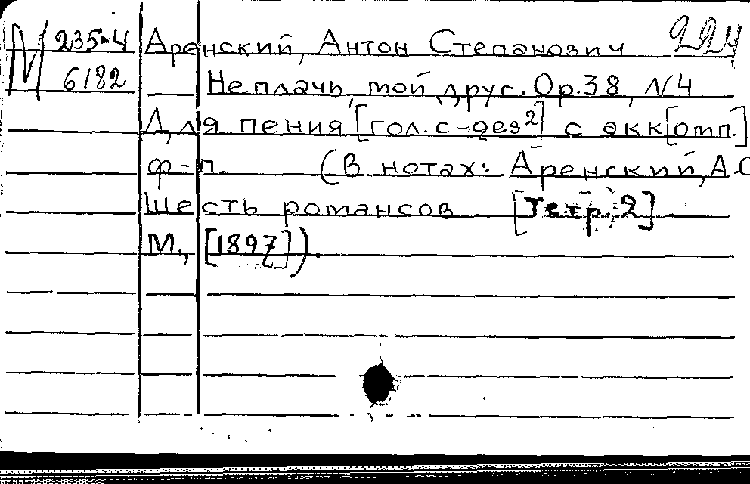 N 235-4 Аренский, Антон Степанович 224
6182 Не плачь, мой друг. Op.38, №4
Для пения [гол. c-des²] с акк[омп.]
ф-п. (В нотах: Аренский, А.С
Шесть романсов [Тетр. 2]
М., [1897]).